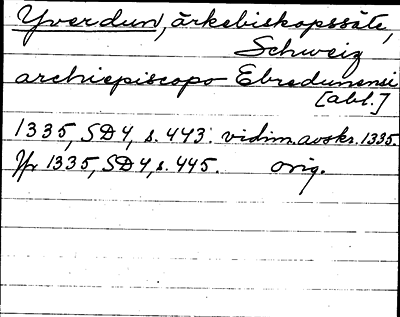 Yverdun, ärkebiskopssäte,
Schweiz
archiepiscopo Ebredunensi
[abl.]
1335, SD4, s. 443. vidim. avskr. 1335.
1335, SD4, s. 445. orig.